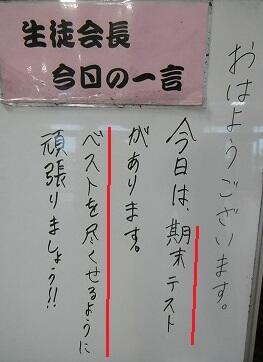 生徒会長
今日の一言
おはようございます。
今日は、期末テスト
があります。
ベストを尽くせるように
頑張りましょう!!